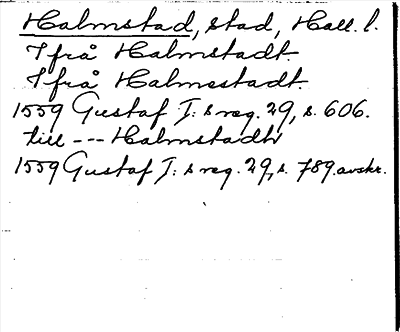 Halmstad, stad, Hall. l.
Ifrå Halmstadt.
Ifrå Halmestadt.
1559 Gustaf I: s reg. 29, s. 606.
till --- Halmstadh
1559 Gustaf I: s reg. 29, s. 789. avskr.